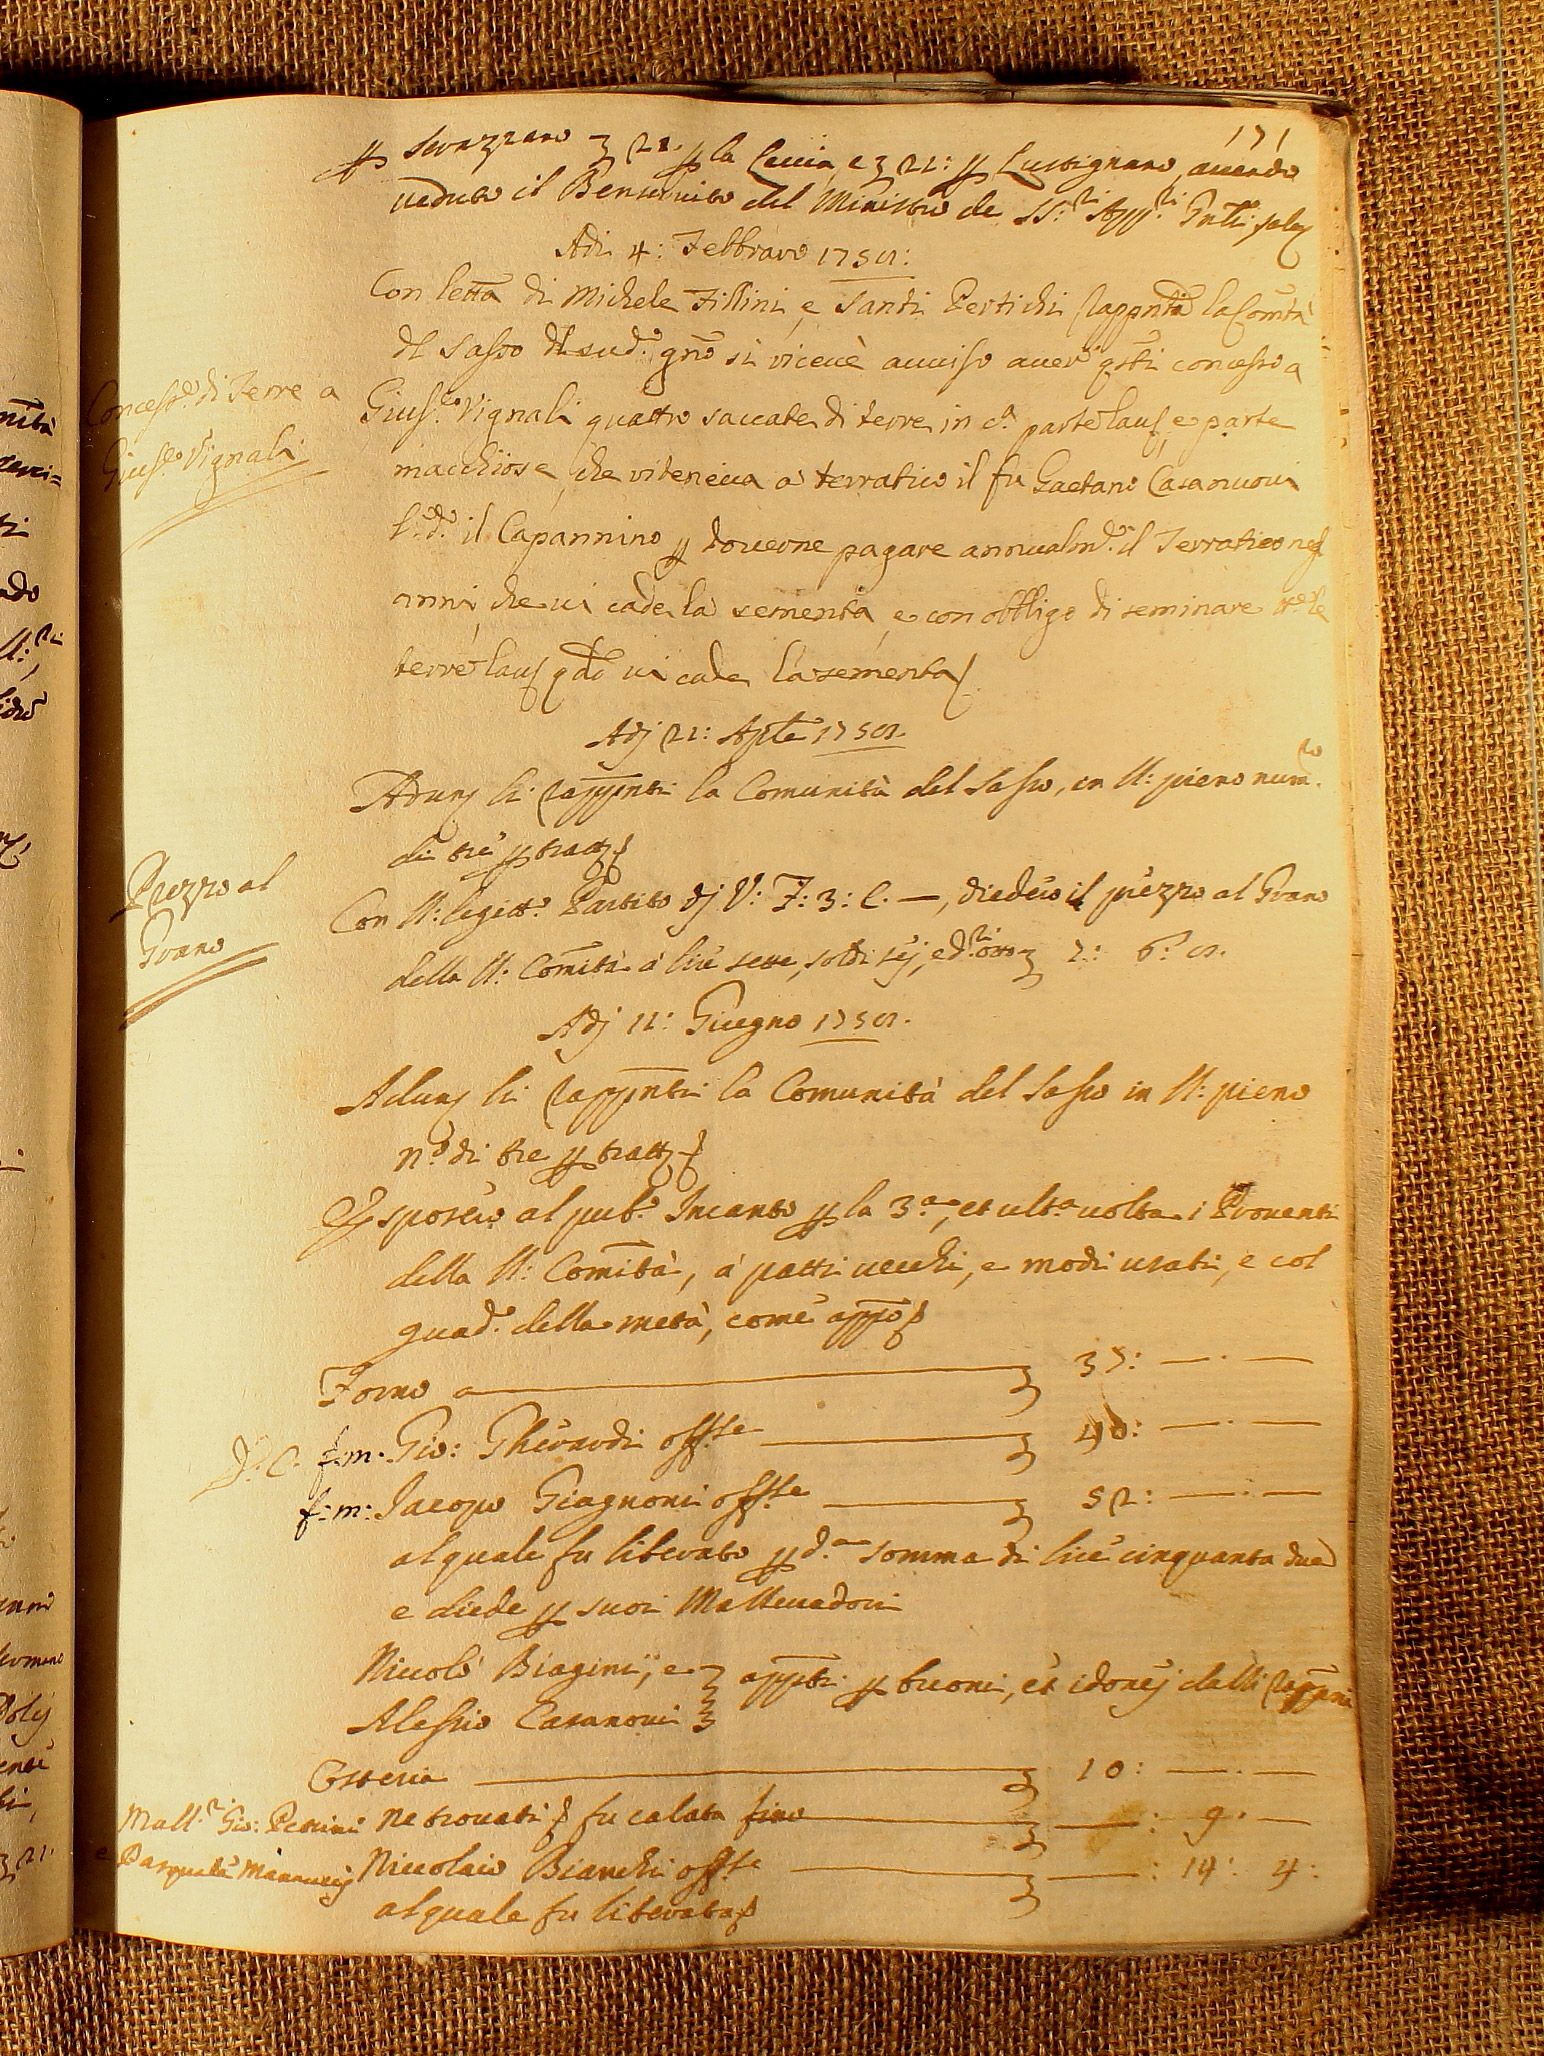 171
p Serazzano £ 21. p la Leccia, e £ 21: p Lustignano, avendo
veduto il Benservito del Ministro de SS:ri App:ri Gnli sal
Adi 4: Febbraro 1758:
Con lettã di Michele Fillini, e Santi Pertichi Rappntĩ la Comtà
dl Sasso dl sud.o gno si riceuè auuiso auer qsti concesso a
Concess.e di Terre a
Gius.e Vignali
Gius.e Vignali quattro saccate di terre in c.a parte laus, e parte
macchiose, che riteneua a terratico il fu Gaetano Casanuoui
l.o d.o il Capannino p douerne pagare annualmd.e il Terratico negl
anni, che ui cade la sementa, e con obbligo di seminare tt.e le
terre laus qdo ui cade la sementa
Adj 21: Aple 1758.
Aduns li Rappnti la Comunità del Sasso, in ll: pieno num.ro
di tre p tratt
Prezzo al
Grano
Con ll: legitt.o Partito dj V: F: 3: C. —, diedero il prezzo al Grano
della ll: Comità à lire sette, soldi sej, e d.ri otto £ 7: 6: 8.
Adj 11: Giugno 1758.
Aduns li Rappnti la Comunità del Sasso in ll: pieno
n.o di tre p tratt
Esposero al pub.o Incanto p la 3.a, et ult.a uolta i Prouenti
della ll: Comità, à patti uecchi, e modi usati, e col
guad.o della metà, come appo
Forno a — £ 37: — . —
J. C. f:m. Gio: Gherardi off.se — £ 40: — . —
f:m: Jacopo Giagnoni off.se — £ 52: — . —
al quale fu liberato p d.a somma di lire cinquanta due
e diede p suoi Malleuadori
Niccolò Biagini, e
Alessio Casanoui
appti p buoni, et idonej dalli Rappnti
Osteria — £ 10: — . —
Mall.ri Gio: Pettini
e Pasquale Mannucij
Ne trouati fu calata fino — £ — : 9. —
Niccolaio Bianchi off.se — £ — : 14: 4:
al quale fu liberata